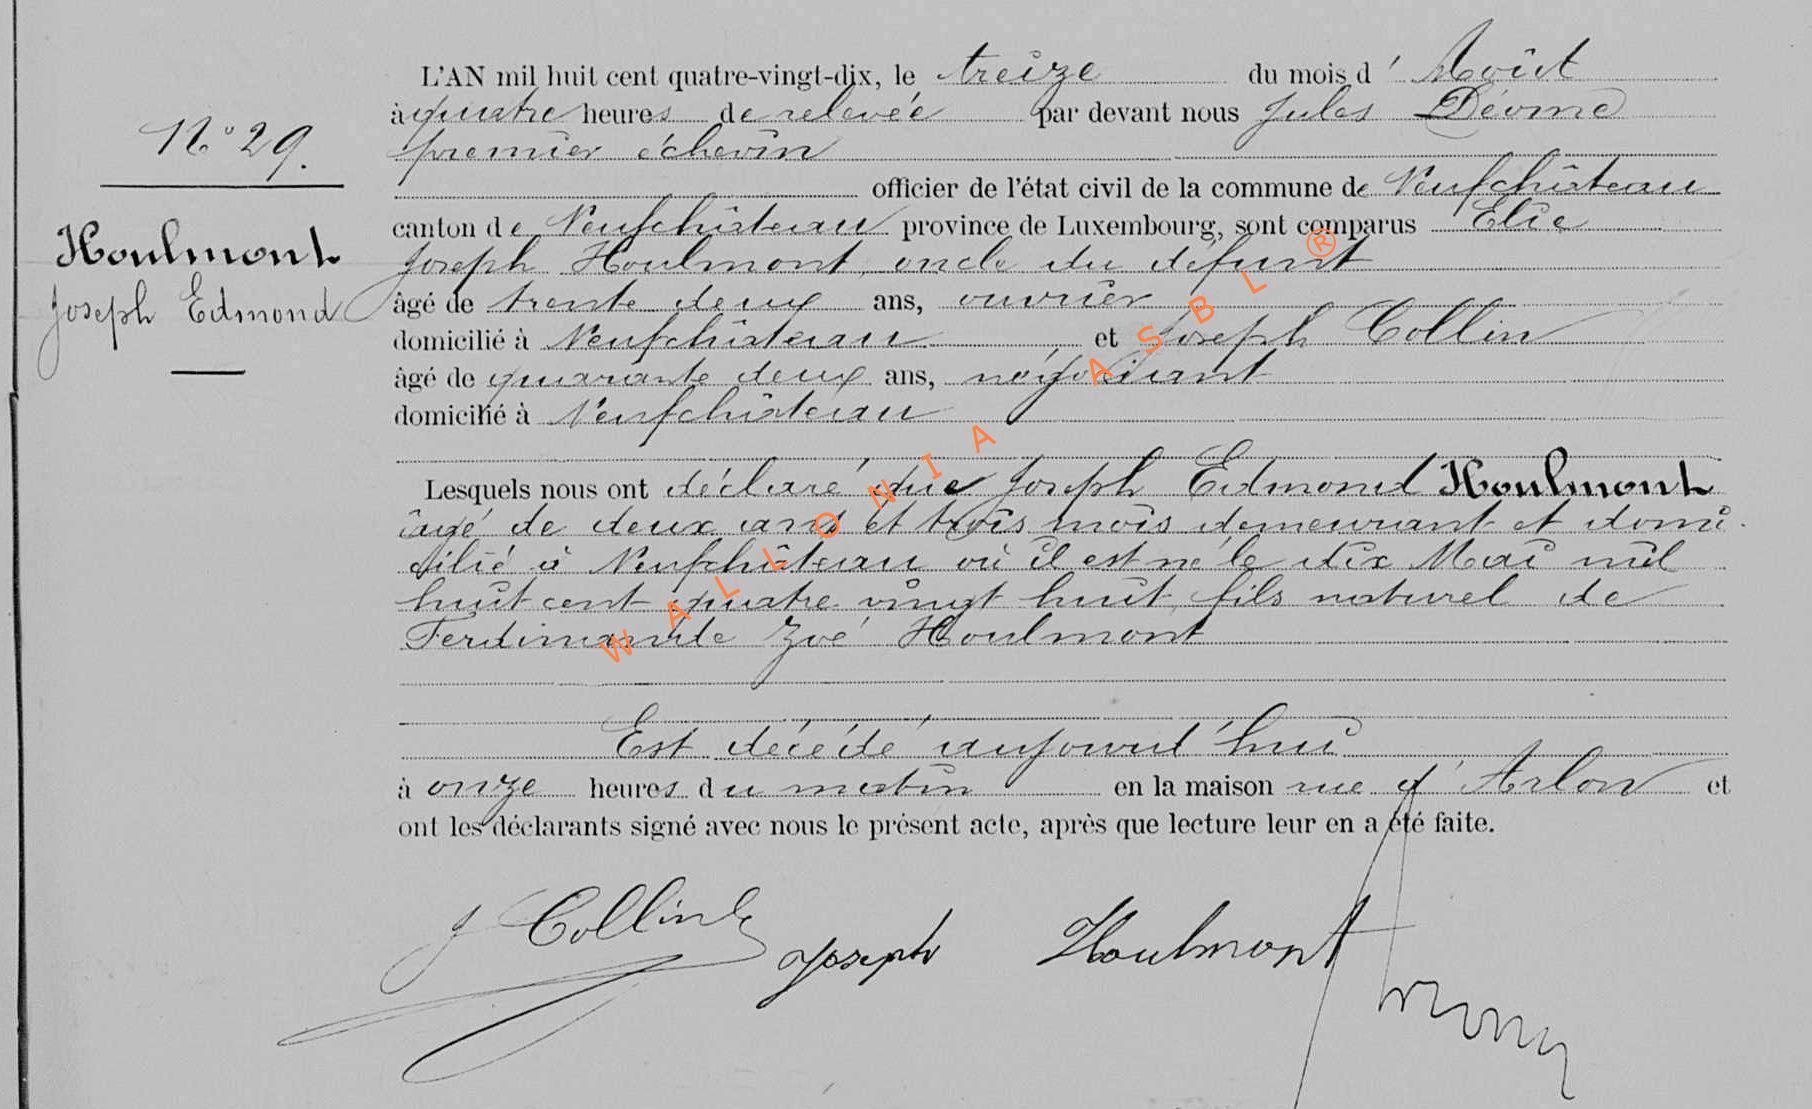 L'AN mil huit cent quatre-vingt-dix, le treize du mois d' Août
à quatre heures de relevée par devant nous Jules Déome
premier échevin
officier de l'état civil de la commune de Neufchâteau
canton de Neufchâteau province de Luxembourg, sont comparus Elie
Joseph Houlmont, oncle du défunt
âgé de trente deux ans, ouvrier
domicilié à Neufchâteau et Joseph Collin
âgé de quarante deux ans, négociant
domicilié à Neufchâteau
N° 29.
Houlmont
Joseph Edmond
Lesquels nous ont déclaré que Joseph Edmond Houlmont
âgé de deux ans et trois mois demeurant et domi-
cilié à Neufchâteau où il est né le dix Mai mil
huit cent quatre vingt huit, fils naturel de
Ferdinande Zoé Houlmont
Est décédé aujourd'hui
à onze heures du matin en la maison rue d'Arlon et
ont les déclarants signé avec nous le présent acte, après que lecture leur en a été faite.
J Collin
Joseph Houlmont
WALLONIA ASBL ®